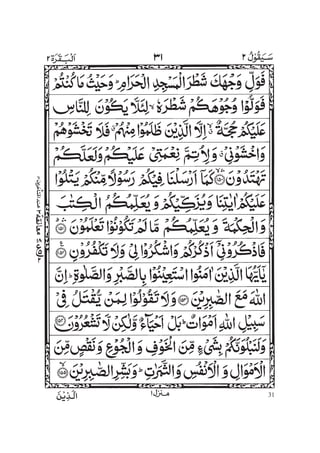 سَيَقُوْلُ ٢ ٣١ اَلْبَقَرَة ٢
فَوَلِّ وَجْهَكَ شَطْرَ الْمَسْجِدِ الْحَرَامِ ؕ وَحَيْثُ مَا كُنْتُمْ
فَوَلُّوْا وُجُوْهَكُمْ شَطْرَهٗ ۙ لِئَلَّا يَكُوْنَ لِلنَّاسِ
عَلَيْكُمْ حُجَّةٌ ۙ اِلَّا الَّذِيْنَ ظَلَمُوْا مِنْهُمْ ۗ فَلَا تَخْشَوْهُمْ
وَاخْشَوْنِيْ ۗ وَلِاُتِمَّ نِعْمَتِيْ عَلَيْكُمْ وَلَعَلَّكُمْ
تَهْتَدُوْنَ ﴿١٥٠﴾ كَمَآ اَرْسَلْنَا فِيْكُمْ رَسُوْلًا مِّنْكُمْ يَتْلُوْا
عَلَيْكُمْ اٰيٰتِنَا وَيُزَكِّيْكُمْ وَ يُعَلِّمُكُمُ الْكِتٰبَ
وَ الْحِكْمَةَ وَ يُعَلِّمُكُمْ مَّا لَمْ تَكُوْنُوْا تَعْلَمُوْنَ ﴿١٥١﴾
فَاذْكُرُوْنِيْٓ اَذْكُرْكُمْ وَاشْكُرُوْا لِيْ وَلَا تَكْفُرُوْنِ ﴿١٥٢﴾
يٰٓاَيُّهَا الَّذِيْنَ اٰمَنُوا اسْتَعِيْنُوْا بِالصَّبْرِ وَالصَّلٰوةِ ؕ اِنَّ
اللّٰهَ مَعَ الصّٰبِرِيْنَ ﴿١٥٣﴾ وَلَا تَقُوْلُوْا لِمَنْ يُّقْتَلُ فِيْ
سَبِيْلِ اللّٰهِ اَمْوَاتٌ ؕ بَلْ اَحْيَآءٌ وَّلٰكِنْ لَّا تَشْعُرُوْنَ ﴿١٥٤﴾
وَلَنَبْلُوَنَّكُمْ بِشَيْءٍ مِّنَ الْخَوْفِ وَ الْجُوْعِ وَ نَقْصٍ مِّنَ
الْاَمْوَالِ وَ الْاَنْفُسِ وَ الثَّمَرٰتِ ؕ وَبَشِّرِ الصّٰبِرِيْنَ ﴿١٥٥﴾
31 منزل ١ اَلَّذِيْنَ